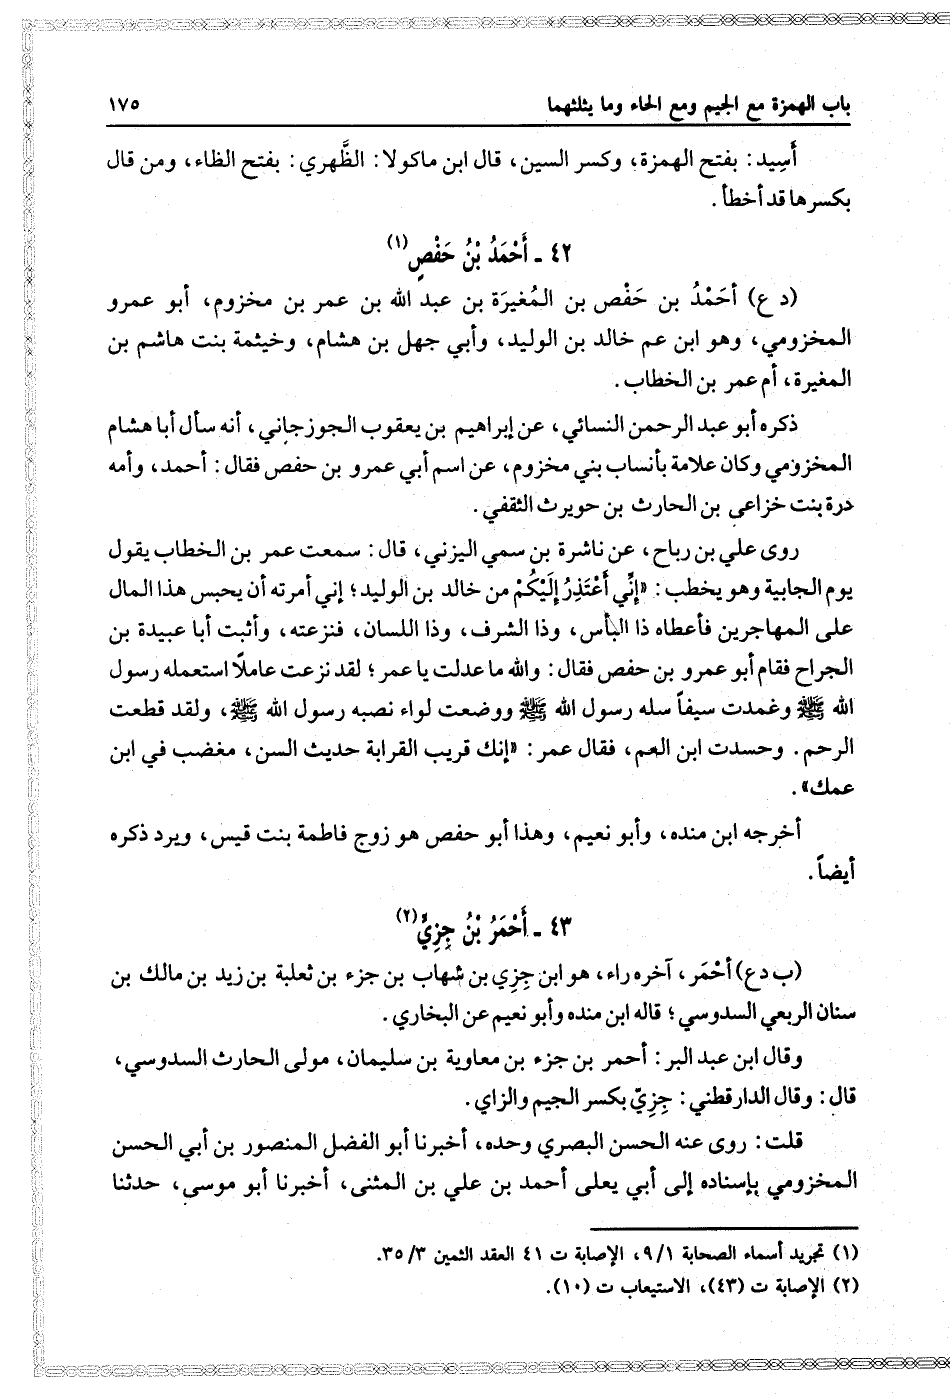 باب الهمزة مع الجيم ومع الحاء وما يثلثهما
١٧٥
أَسِيد: بفتح الهمزة، وكسر السين، قال ابن ماكولا: الظَّهري: بفتح الظاء، ومن قال
بكسرها قد أخطأ.
٤٢ ـ أَحْمَدُ بْنُ حَفْصٍ(١)
(د ع) أحَمْدُ بن حَفْص بن المُغيرَة بن عبد الله بن عمر بن مخزوم، أبو عمرو
المخزومي، وهو ابن عم خالد بن الوليد، وأبي جهل بن هشام، وخيثمة بنت هاشم بن
المغيرة، أم عمر بن الخطاب.
ذكره أبو عبد الرحمن النسائي، عن إبراهيم بن يعقوب الجوزجاني، أنه سأل أبا هشام
المخزومي وكان علامة بأنساب بني مخزوم، عن اسم أبي عمرو بن حفص فقال: أحمد، وأمه
درة بنت خزاعى بن الحارث بن حويرث الثقفي.
روى علي بن رباح، عن ناشرة بن سمي اليزني، قال: سمعت عمر بن الخطاب يقول
يوم الجابية وهو يخطب: «إنِّي أَعْتَذِرُ إلَيْكُمْ من خالد بن الوليد؛ إني أمرته أن يحبس هذا المال
على المهاجرين فأعطاه ذا البأس، وذا الشرف، وذا اللسان، فنزعته، وأثبت أبا عبيدة بن
الجراح فقام أبو عمرو بن حفص فقال: والله ما عدلت يا عمر؛ لقد نزعت عاملاً استعمله رسول
الله ﷺ وغمدت سيفاً سله رسول الله ﷺ ووضعت لواء نصبه رسول الله ﷺ، ولقد قطعت
الرحم. وحسدت ابن العم، فقال عمر: «إنك قريب القرابة حديث السن، مغضب في ابن
عمك».
أخرجه ابن منده، وأبو نعيم، وهذا أبو حفص هو زوج فاطمة بنت قيس، ويرد ذكره
أيضاً.
٤٣ ـ أَحْمَرُ بْنُ جِزِيٍّ(٢)
(ب د ع) أحْمَر، آخره راء، هو ابن جِزِي بن شهاب بن جزء بن ثعلبة بن زيد بن مالك بن
سنان الربعي السدوسي؛ قاله ابن منده وأبو نعيم عن البخاري.
وقال ابن عبد البر: أحمر بن جزء بن معاوية بن سليمان، مولى الحارث السدوسي،
قال: وقال الدارقطني: جِزِيّ بكسر الجيم والزاي.
قلت: روى عنه الحسن البصري وحده، أخبرنا أبو الفضل المنصور بن أبي الحسن
المخزومي بإسناده إلى أبي يعلى أحمد بن علي بن المثنى، أخبرنا أبو موسى، حدثنا
(١) تجريد أسماء الصحابة ٩/١، الإصابة ت ٤١ العقد الثمين ٣/ ٣٥.
(٢) الإصابة ت (٤٣)، الاستيعاب ت (١٠).